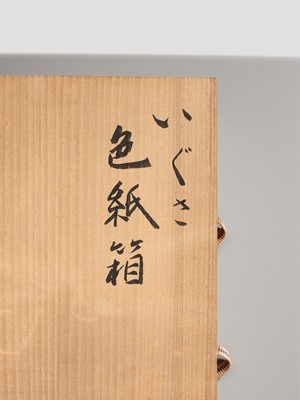 いぐさ
色紙箱